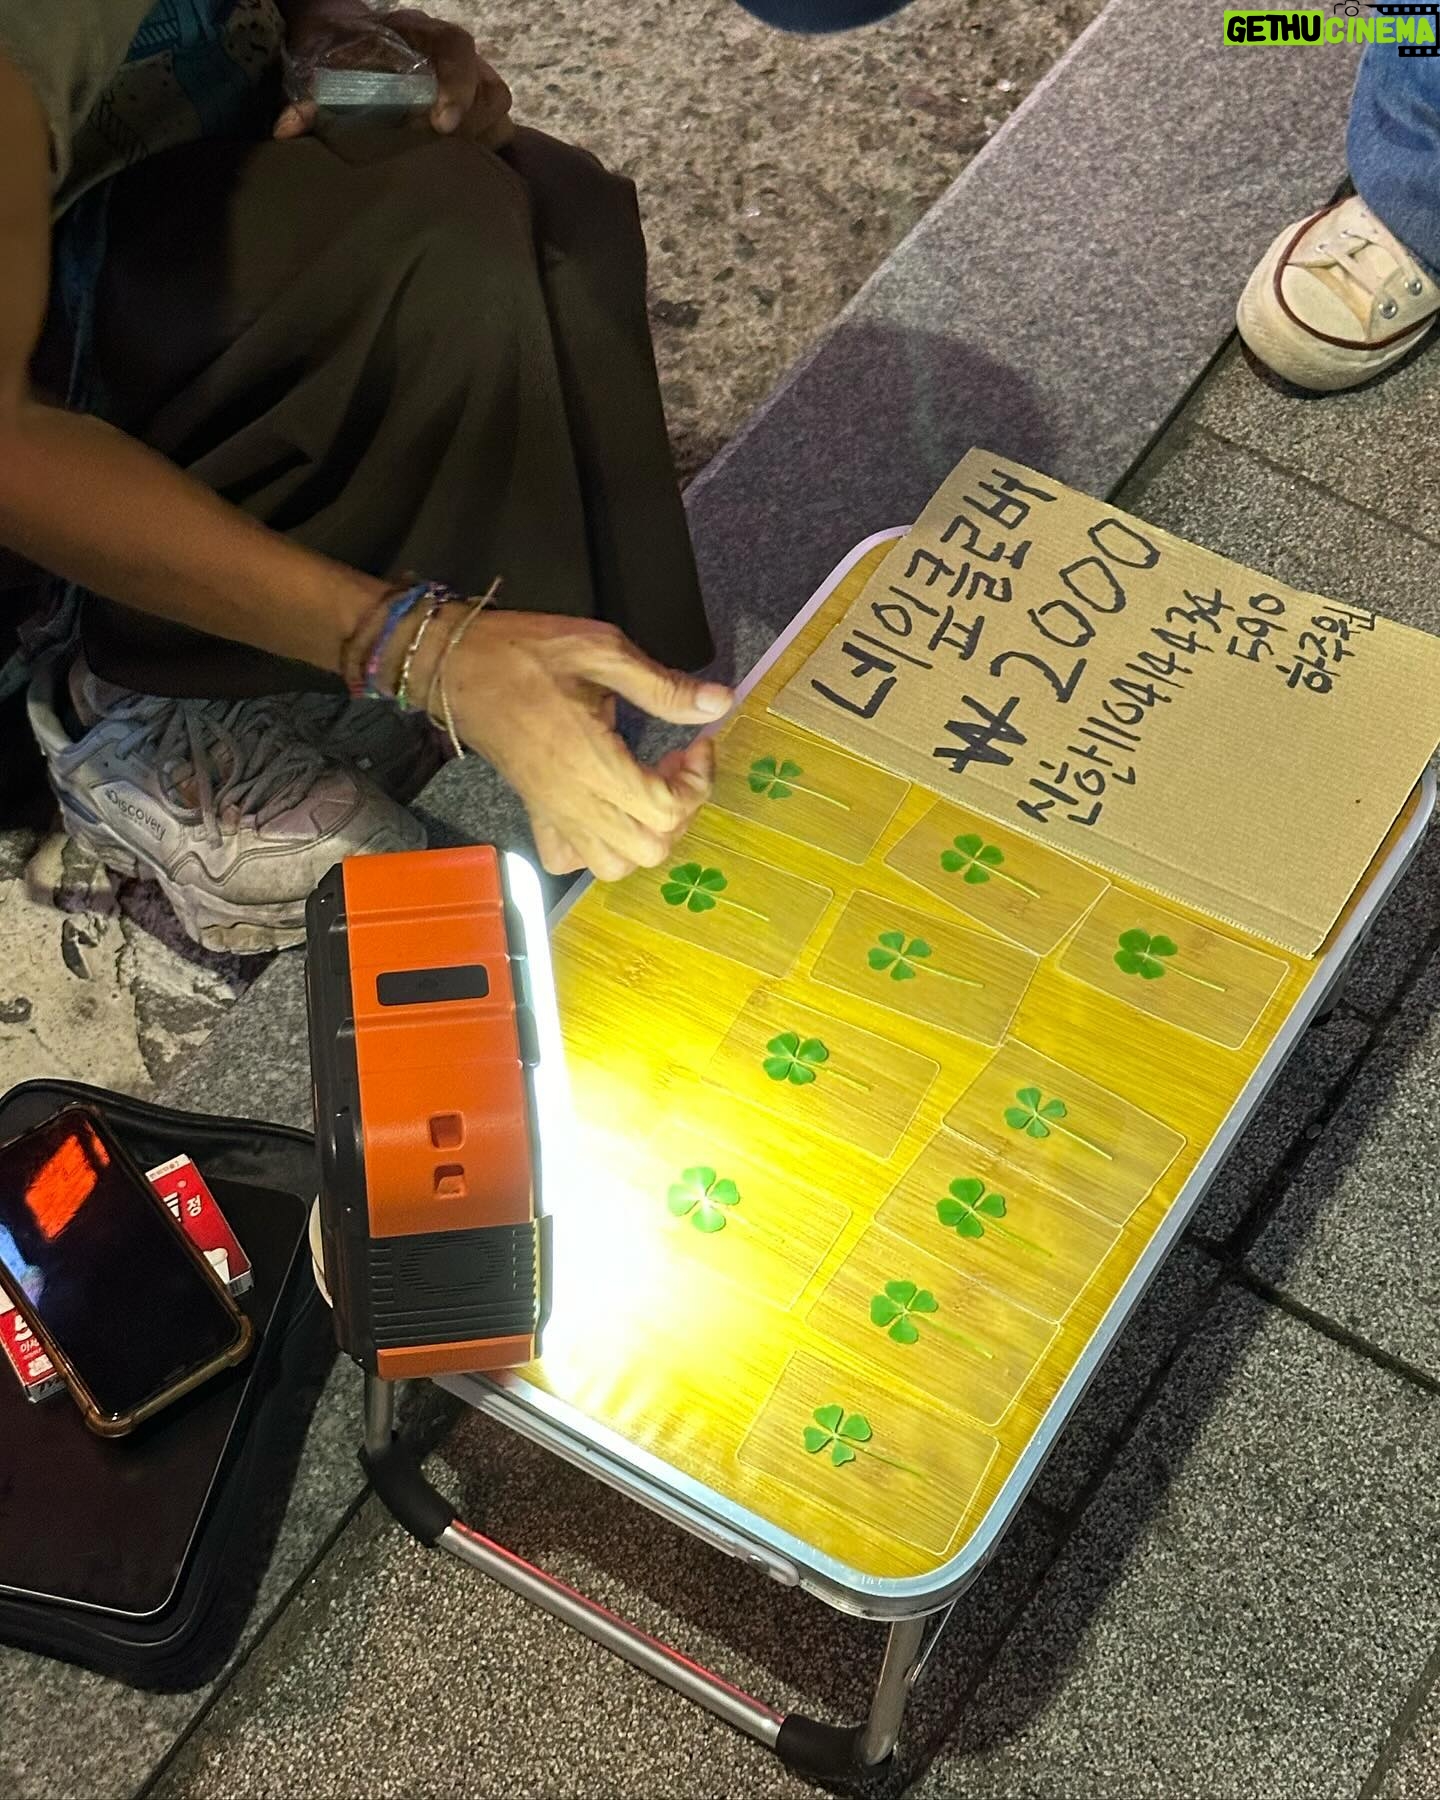 GETHUCINEMA
네이프클로버
₩2000
신한110414434
590
하주원
Discovery
정